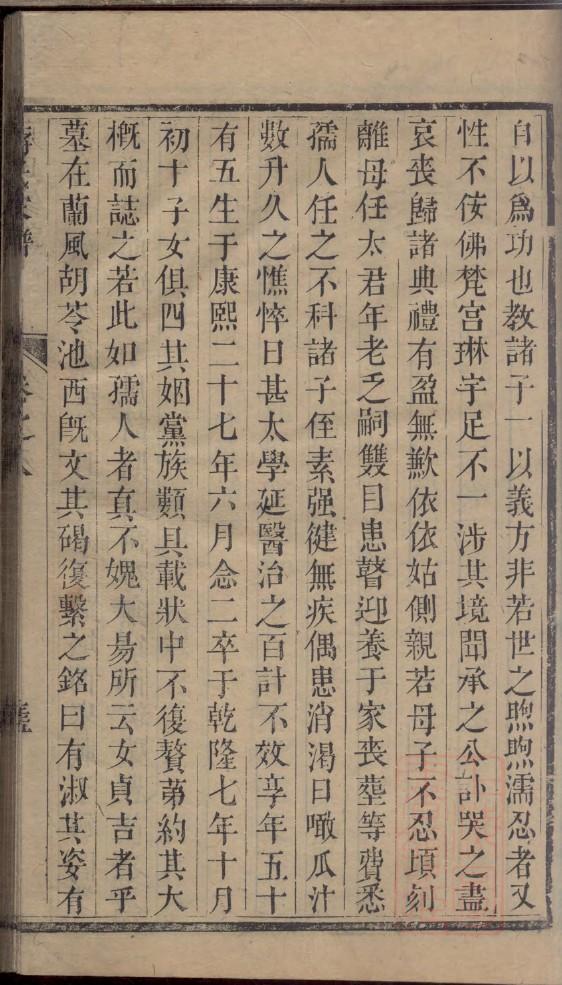 自以爲功也教諸子一以義方非若世之煦煦濡忍者又
性不侫佛梵宫琳宇足不一涉其境聞承之公訃哭之盡
哀喪歸諸典禮有盈無歉依依姑側親若母子不忍頃刻
離母任太君年老乏嗣雙目患瞽迎養于家喪塟等費悉
孺人任之不科諸子侄素强健無疾偶患消渴日噉瓜汁
數升久之憔悴日甚太學延醫治之百計不效享年五十
有五生于康熙二十七年六月念二卒于乾隆七年十月
初十子女俱四其姻黨族類具載狀中不復贅苐約其大
槪而誌之若此如孺人者真不媿大昜所云女貞吉者乎
墓在蘭風胡芩池西旣文其碣復繫之銘曰有淑其姿有